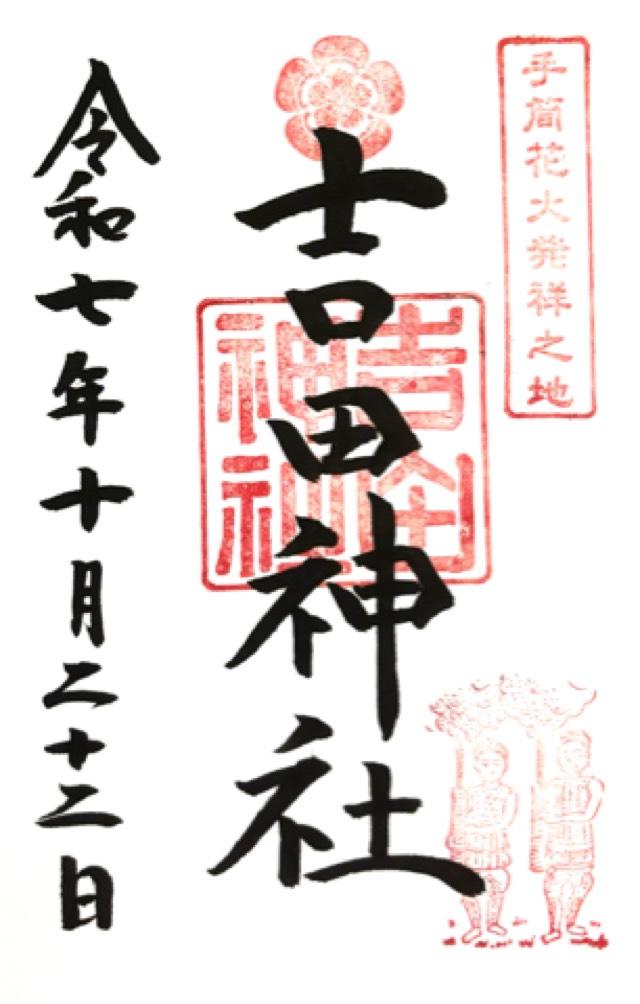 手筒花火発祥之地
吉田神社
吉田
神社
令和七年十月二十二日